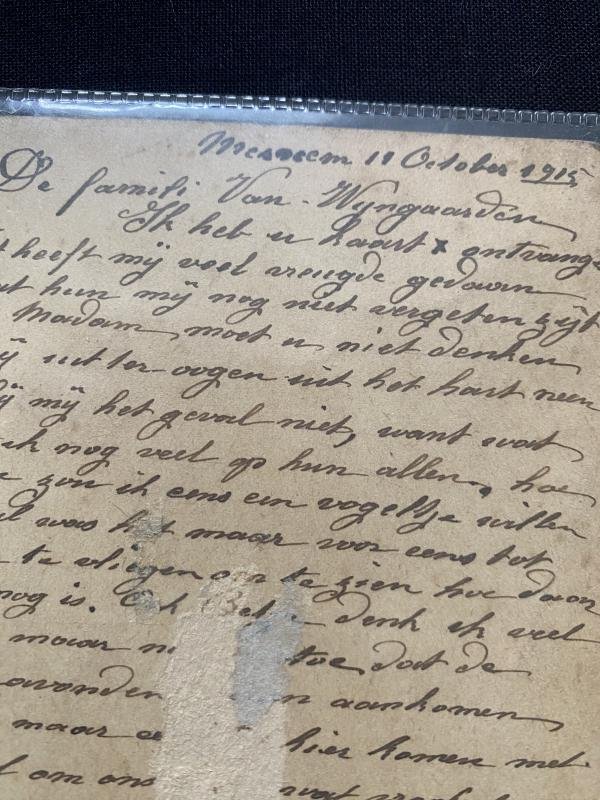 11 October 1915
De famili Van-Wyngaarden
Ik heb u kaart x ontvange
heeft mij veel vreugde gedaan
hun mij nog niet vergeten zijt
Madam, moet u niet denken
uit ter oogen uit het hart neen
mij het geval niet, want wat
ik nog veel op hun allen, hoe
zou ik eens een vogeltje willen
was het maar voor eens tot
te vliegen om te zien hoe daar
nog is. denk ik veel
maar toe, dat de
avonden aankomen
maar hier komen met
om ons